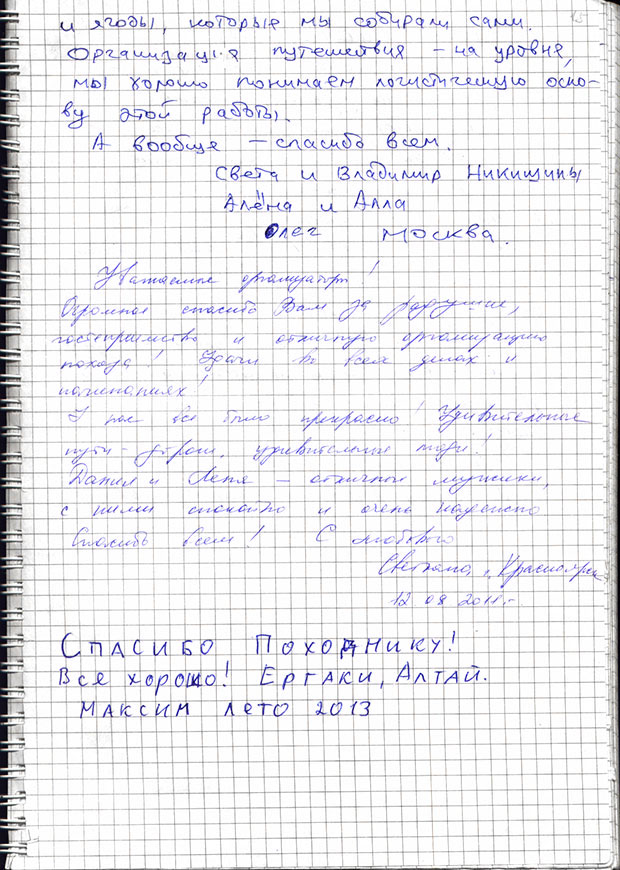 и ягоды, которые мы собирали сами.
Организация путешествия – на уровне,
мы хорошо понимаем логистическую осно-
ву этой работы.
А вообще – спасибо всем.
Света и Владимир Никишины
Алёна и Алла
Олег Москва.
Уважаемые организаторы!
Огромное спасибо Вам за радушие,
гостеприимство и отличную организацию
похода! Удачи во всех делах и
начинаниях!
У нас все было прекрасно! Удивительные
пути-дороги, удивительные люди!
Данил и Леня – отличные мужики,
с ними спокойно и очень надежно
Спасибо всем! С любовью
Светлана, г. Красноярск
12 08 2011г.
Спасибо Походнику!
Все хорошо! Ергаки, Алтай.
Максим лето 2013